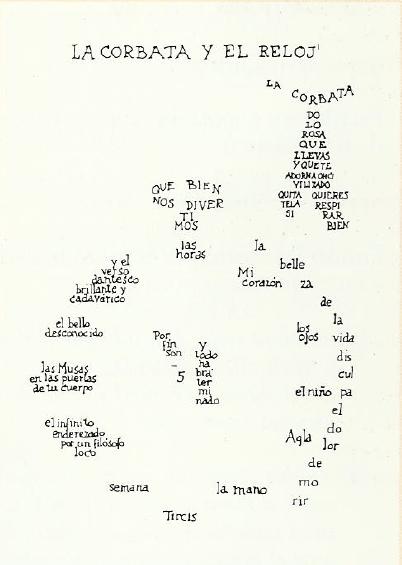 LA CORBATA Y EL RELOJ
LA CORBATA
DO
LO
ROSA
QUE
LLEVAS
Y QUE TE
ADORNA OH CI
VILIZADO
QUITA QUIERES
TELA RESPI
SI RAR
BIEN
QUE BIEN
NOS DIVER
TI
MOS
las
horas
la
belle
za
de
la
vida
dis
cul
pa
el
do
lor
de
mo
rir
Mi
corazón
los
ojos
el niño
Agla
la mano
Tircis
semana
el infinito
enderezado
por un filósofo
loco
las Musas
en las puertas
de tu cuerpo
el bello
desconocido
y el
verso
dantesco
brillante y
cadavérico
Por
fin
son
-
5
y
todo
ha
brá
ter
mi
nado